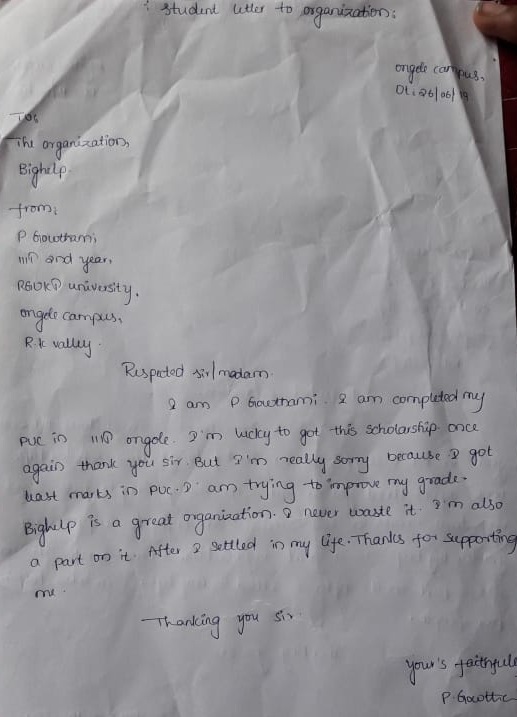 : Student letter to organization:
ongole campus,
Dt: 26/06/19
To,
The organization,
Bighelp.
from:
P Gowthami
IIIT 2nd year,
RGUKT university,
ongole campus,
R.k valley.
Respected sir/madam.
I am P Gowthami. I am completed my
PUC in IIIT ongole. I'm lucky to got this scholarship once
again thank you sir. But I'm really sorry because I got
least marks in PUC. I am trying to improve my grade.
Bighelp is a great organization. I never waste it. I'm also
a part on it. After I settled in my life. Thanks for supporting
me.
Thanking you sir.
your's faithfull
P. Gowth